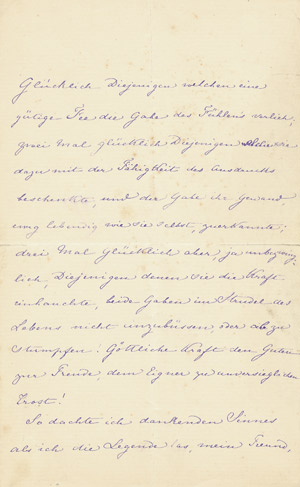 Glücklich Diejenigen welchen eine
gütige Fee die Gabe des Fühlens verlieh,
zwei mal glücklich Diejenigen die sie
dazu mit der Fähigkeit des Ausdrucks
beschenkte, und der Gabe die
ewig lebendig wie sie selbst, zuerkannte;
drei Mal glücklich aber, ja
lich, Diejenigen denen sie die Kraft
einhauchte, beide Gaben im Strudel des
Lebens nicht einzubüssen oder abzu
stumpfen! Göttliche Kraft dem Guten
zur Freude, dem Eigner zu unversieglichem
Trost!
So dachte ich dankenden Sinnes
als ich die Legende las, mein Freund,